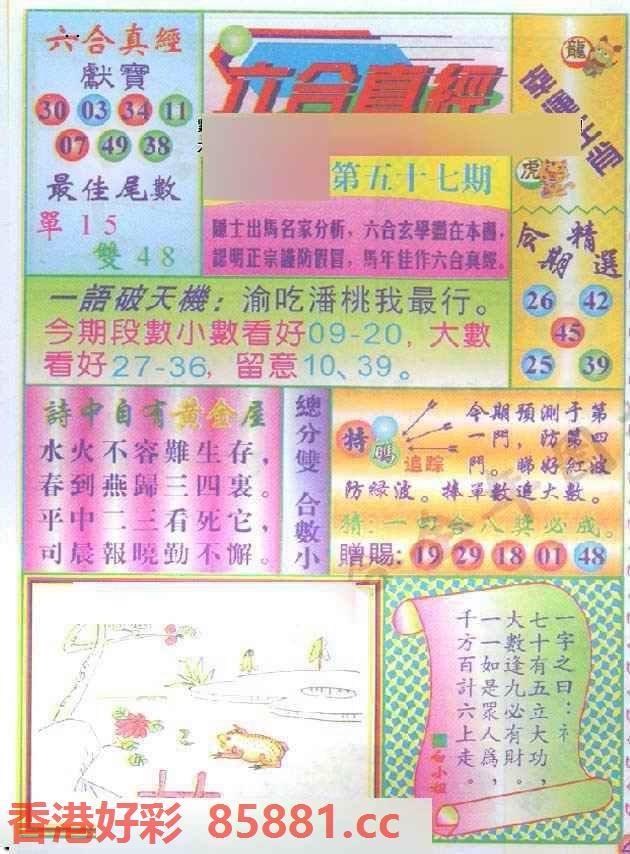 六合真經
獻寶
30 03 34 11
07 49 38
最佳尾數
單 15
雙 48
六合真經
第五十七期
隱士出馬名家分析,六合玄學盡在本圖,
認明正宗謹防假冒,馬年佳作六合真經。
龍
虎
今期精選
26 42
45
25 39
一語破天機:渝吃潘桃我最行。
今期段數小數看好09-20,大數
看好27-36,留意10、39。
詩中自有黃金屋
水火不容難生存,
春到燕歸三四裏。
平中二三看死它,
司晨報曉勤不懈。
總分雙 合數小
特碼
追踪
今期預測于第
一門,防第四
門。睇好紅波
防綠波。捧單數追大數。
猜:一四合八獎必成。
贈賜:19 29 18 01 48
一字之曰:礻
七十有五立大功,
大數逢九必有財。
一一如是眾人為,
千方百計六上走。
白小姐
香港好彩 85881.cc